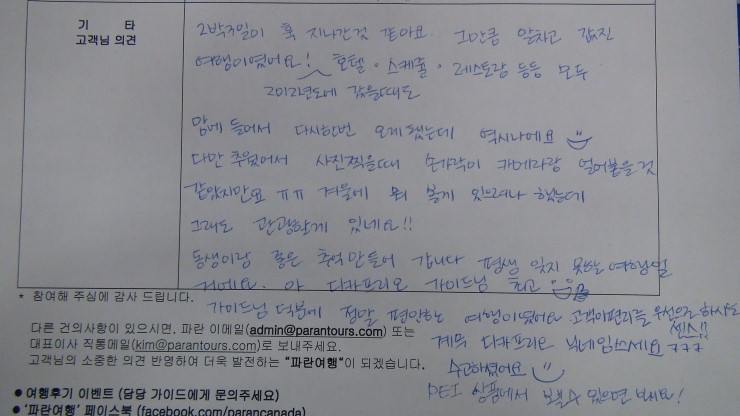 기 타
고객님 의견
2박3일이 훅 지나간것 같아요. 그만큼 알차고 값진
여행이였어요! 호텔·스케줄·레스토랑 등등 모두
2012년도에 갔을때도
맘에 들어서 다시한번 오게됐는데 역시나예요
다만 추웠어서 사진찍을때 손가락이 카메라랑 얼어붙을것
같았지만요 ㅠㅠ 겨울에 뭐 볼게 있으려나 했는데
그래도 관광할게 있네요!!
동생이랑 좋은 추억만들어 갑니다 평생 잊지 못하는 여행일
거에요. 아 디카프리오 가이드님 최고
* 참여해 주심에 감사 드립니다.
가이드님 덕분에 정말 편안한 여행이였어요 고객의편리를 우선으로 하시는
센스!!
다른 건의사항이 있으시면, 파란 이메일(admin@parantours.com) 또는
대표이사 직통메일(kim@parantours.com)로 보내주세요.
계속 디카프리오 닉네임쓰세요 ㅋㅋㅋ
고객님의 소중한 의견 반영하여 더욱 발전하는 "파란여행"이 되겠습니다.
수고하셨어요
PEI 상품에서 볼수 있으면 봐요!
● 여행후기 이벤트 (담당 가이드에게 문의주세요)
● '파란여행' 페이스북 (facebook.com/parancanada)